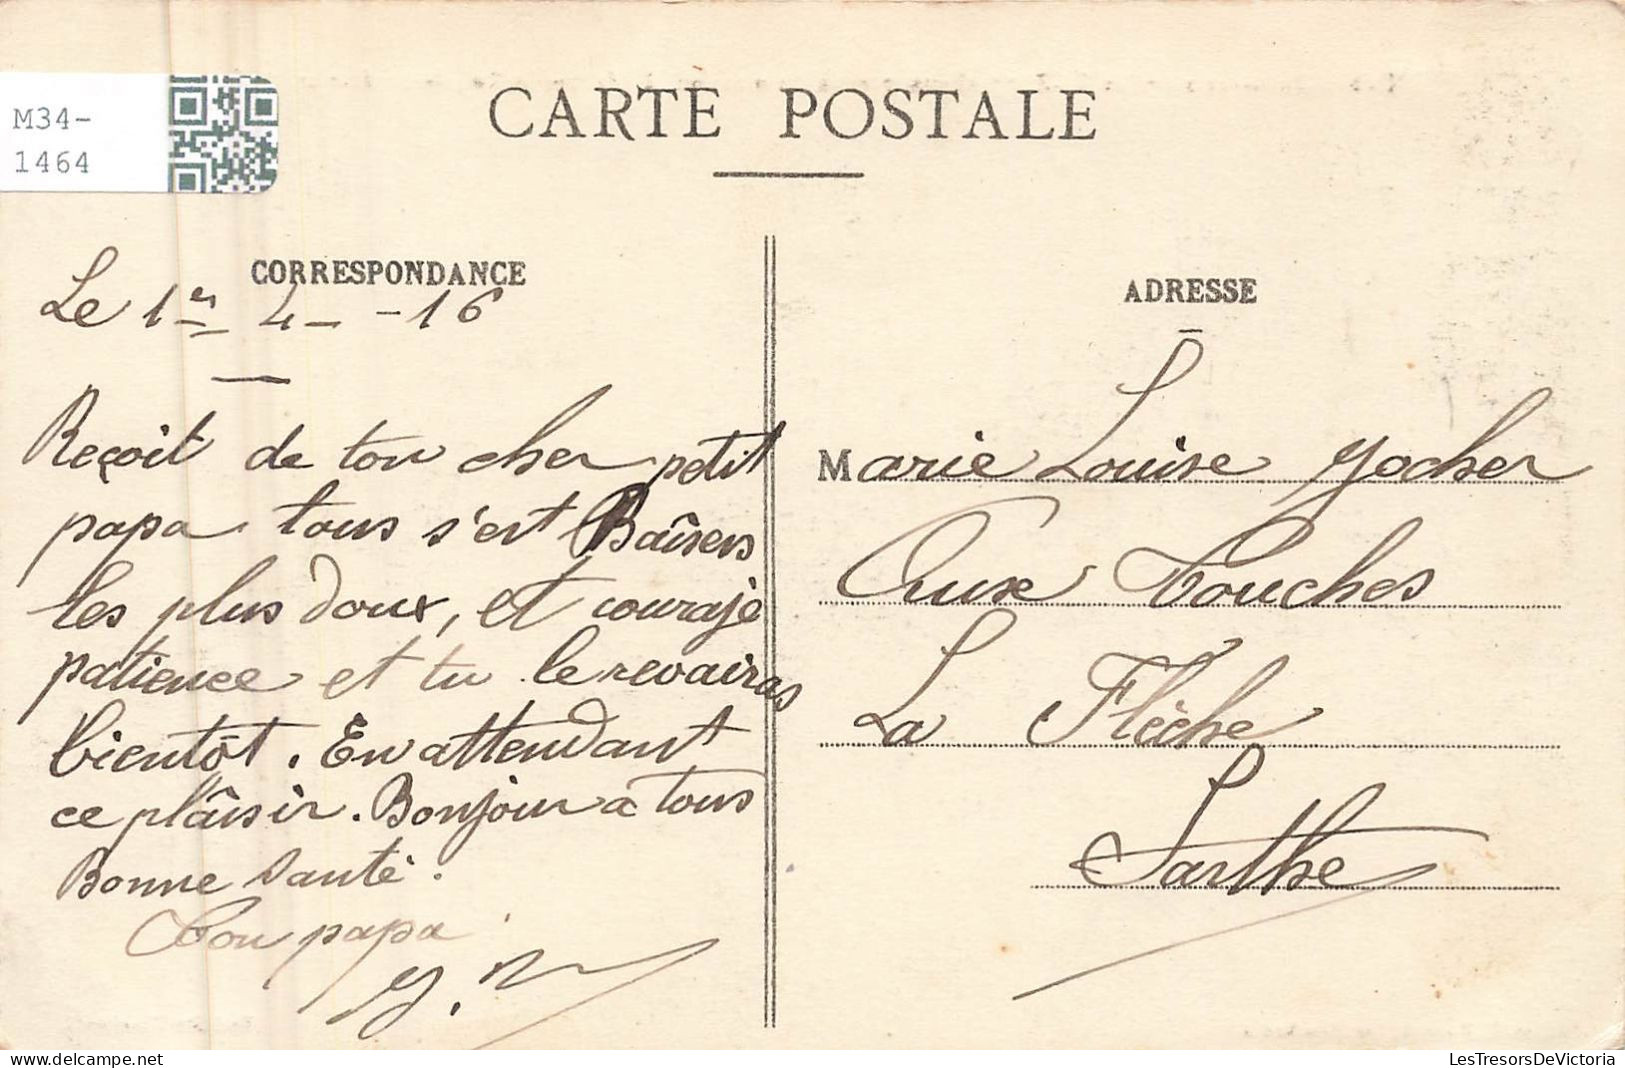 M34-
1464
CARTE POSTALE
CORRESPONDANCE
Le 1er 4 - -16
Reçoit de ton cher petit
papa tous s'est Baîsers
les plus doux, et couraje
patience et tu le revairas
bientôt. En attendant
ce plâisir. Bonjour a tous
Bonne Santé.
Ton papa
ADRESSE
Marie Louise Yocher
Aux Touches
La Flèche
Sarthe
LesTresorsDeVictoria
www.delcampe.net